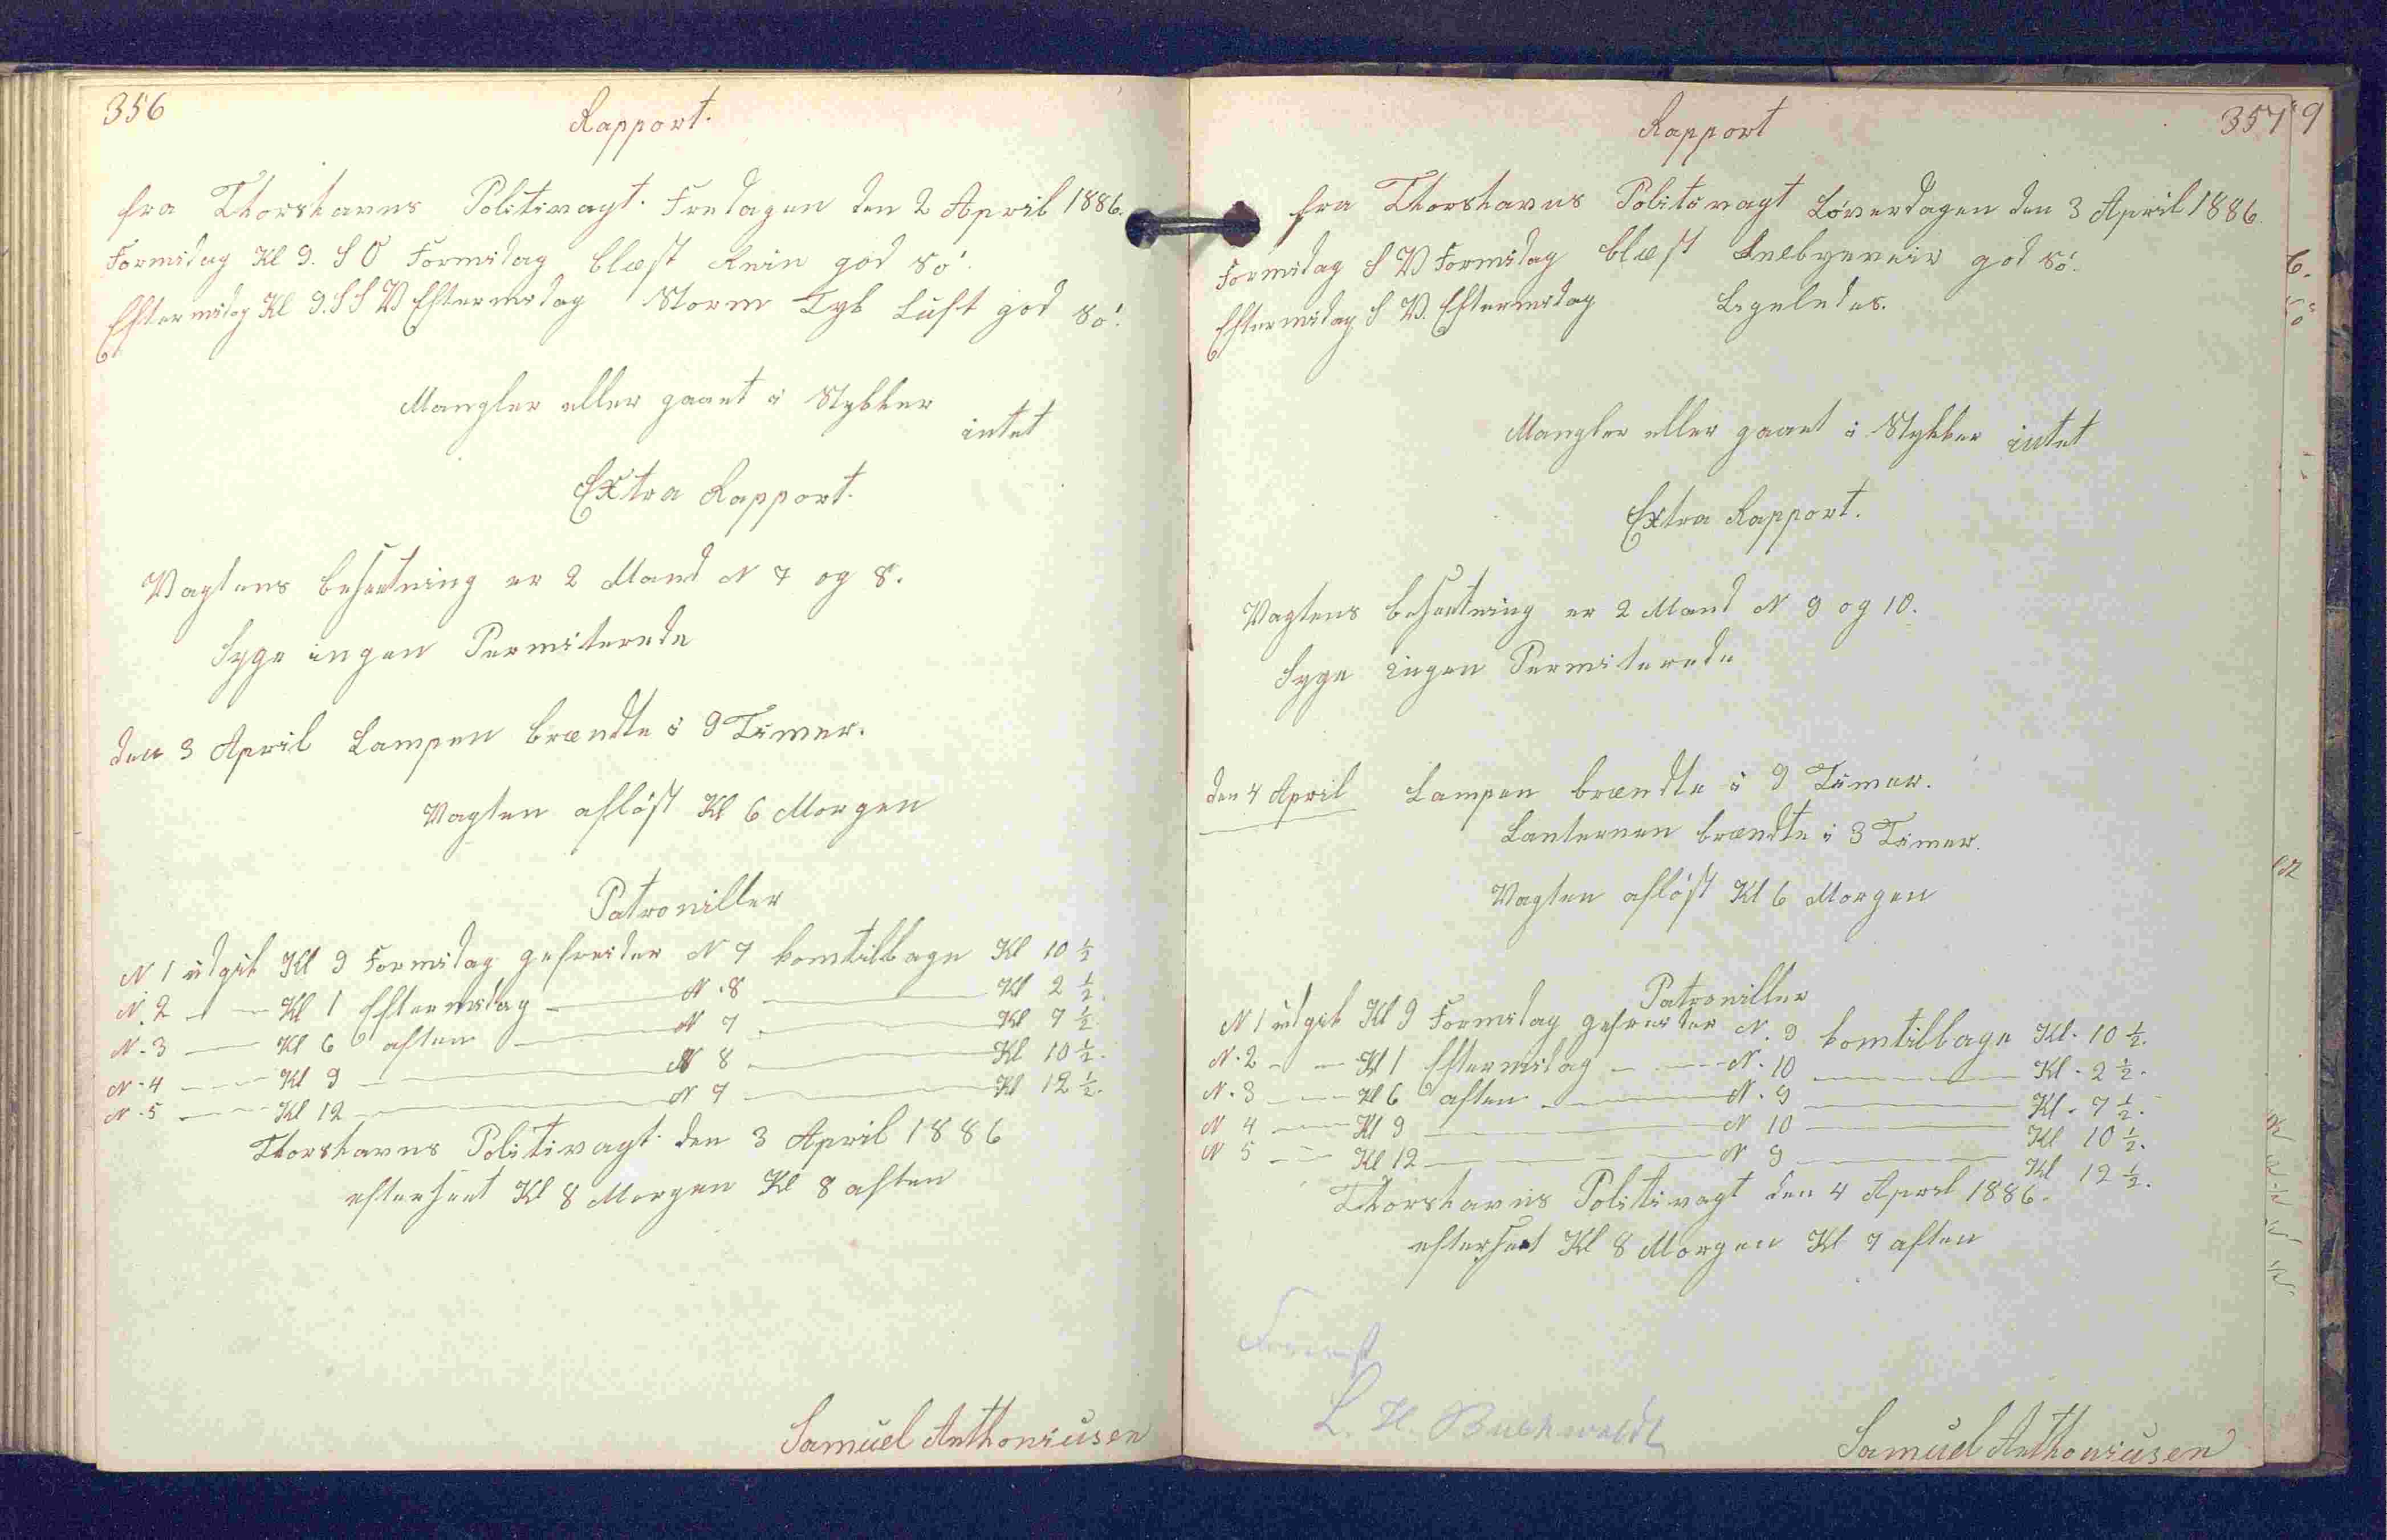 356
Rapport.
fra Thorshavns Politivagt. Fredagen den 2 April 1886.
Formidag Kl 9. S O Formidag blæst Rein god Sö.
Eftermidag Kl 9. S S V Eftermidag Storm Tyk Luft god Sö.
Mangler eller gaaet i Stykker intet
Extra Rapport.
Vagtens besætning er 2 Mand N 7 og 8.
Syge ingen Permiterede
den 3 April Lampen brændte i 9 Timer.
Vagten aflöst Kl 6 Morgen
Patroniller
N. 1 udgik Kl 9 Formidag gefreider N 7 komtilbage Kl 10 ½
N. 2 — — Kl 1 Eftermidag — N. 8 — Kl 2 ½.
N. 3 — Kl 6 aften — N 7 — Kl 7 ½
N. 4 — Kl 9 — N 8 — Kl 10 ½.
N. 5 — Kl 12 — N 7 — Kl 12 ½.
Thorshavns Politivagt. den 3 April 1886
efterseet Kl 8 Morgen Kl 8 aften
Samuel Anthoniusen
357
9
Rapport
fra Thorshavns Politivagt Löverdagen den 3 April 1886.
Formidag S V Formidag blæst god Sö.
Eftermidag S V. Eftermidag Ligeledes.
Mangler eller gaaet i Stykker intet
Extra Rapport.
Vagtens besætning er 2 Mand N 9 og 10.
Syge ingen Permiterede
den 4 April Lampen brændte i 9 Timer.
Lanternen brændte i 3 Timer.
Vagten aflöst Kl 6 Morgen
Patroniller
N 1 udgik Kl 9 Formidag gefreider N. 9 komtilbage Kl. 10 ½.
N. 2 — — Kl 1 Eftermidag — N. 10 — Kl. 2 ½.
N. 3 — Kl 6 aften — N. 9 — Kl. 7 ½.
N 4 — Kl 9 — N 10 — Kl 10 ½.
N 5 — Kl 12 — N 9 — Kl 12 ½.
Thorshavns Politivagt den 4 April 1886.
efterseet Kl 8 Morgen Kl 7 aften
L. H. Buchwaldt
Samuel Anthoniusen